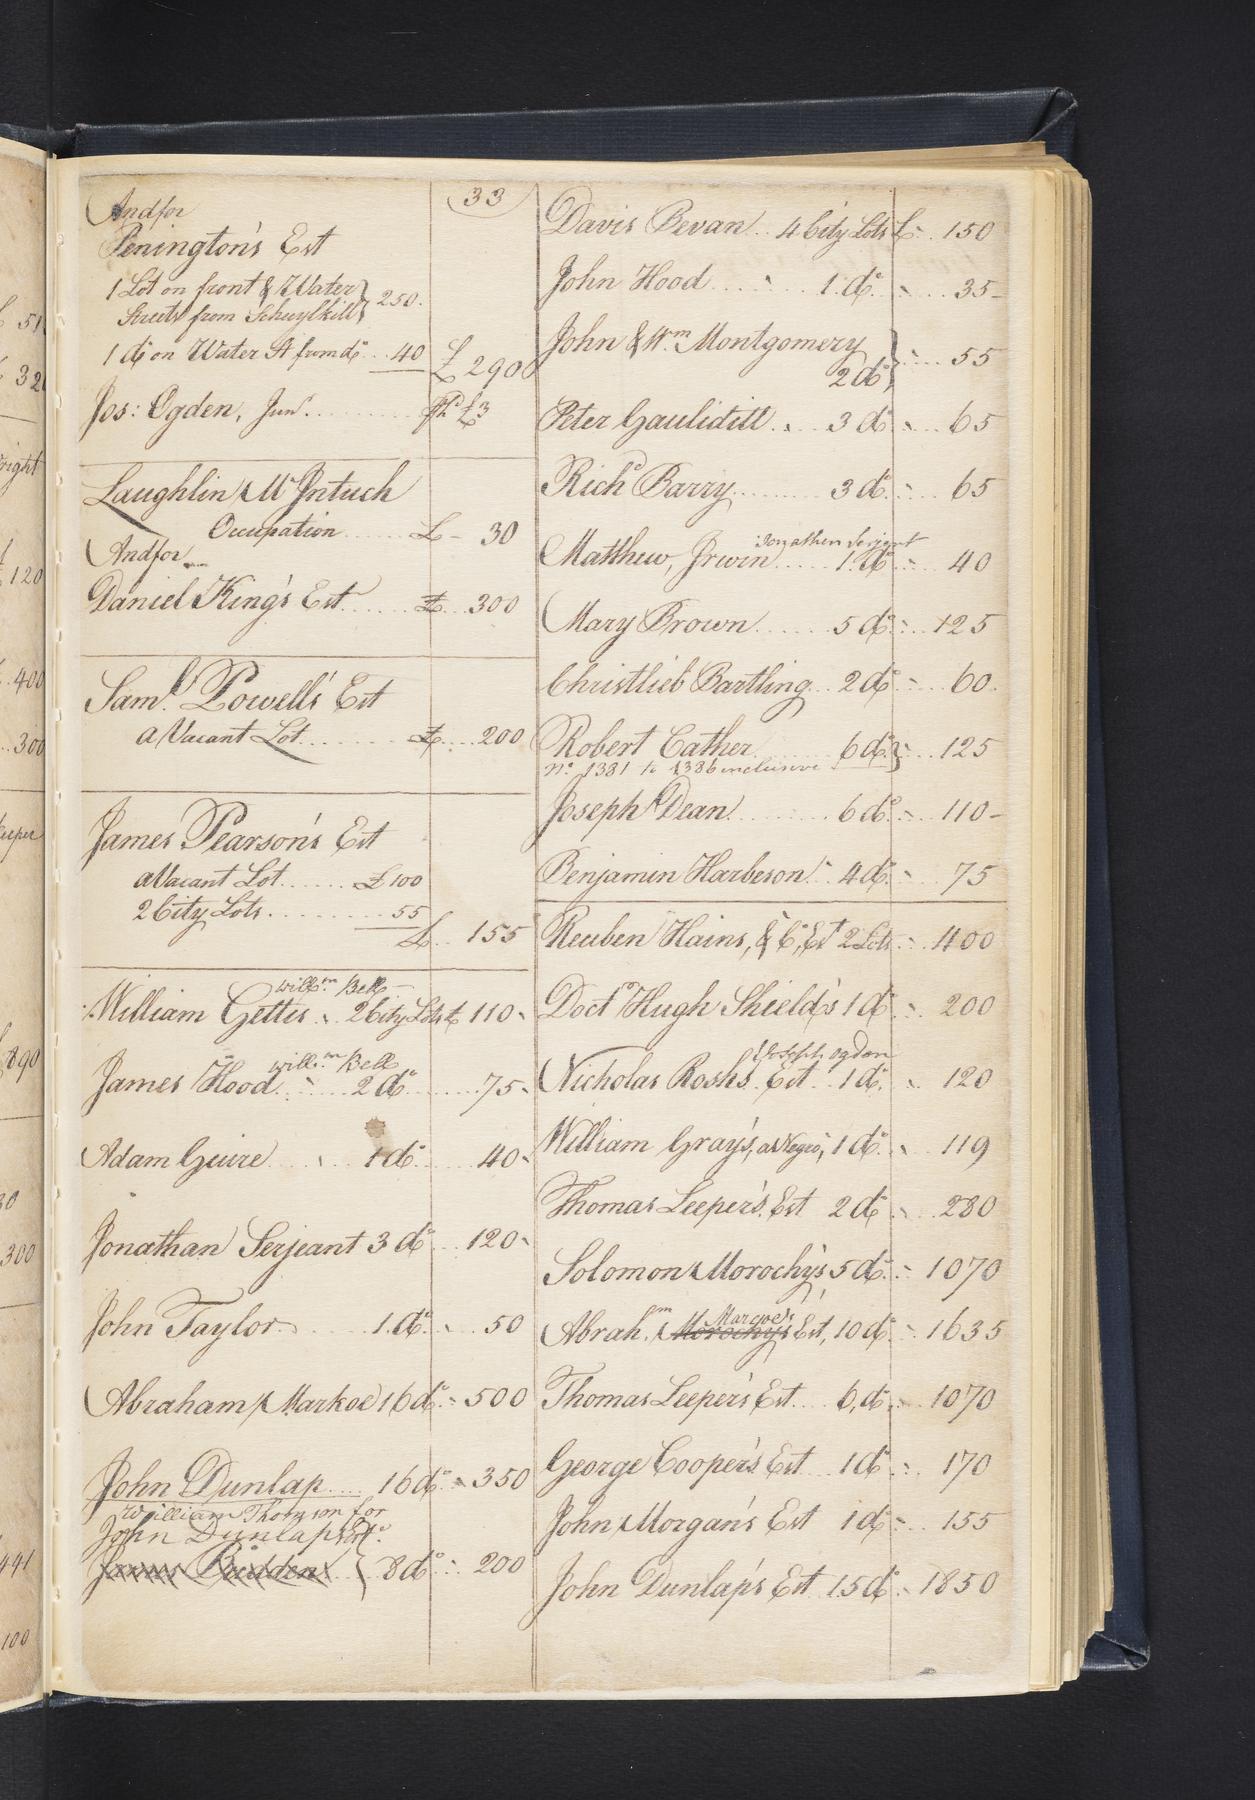 33
Andfor
Penington's Est
1 Lot on front & Water
Streets from Schuylkill } 250.
1 do on Water St from do .. 40 £ 290
Jos: Ogden, Junr. ........ Ph £3
Laughlin McIntuch
Occupation ...... £ - 30
Andfor
Daniel King's Est ...... £ ... 300
Saml. Powell's Est
a Vacant Lot ........ £ .... 200
James Pearson's Est
a Vacant Lot ...... £ 100
2 City Lots ......... 55
£ .. 155
Willm. Bell
William Gettis . 2 City Lots £ 110
Willm. Bell
James Hood ...... 2 do ...... 75
Adam Guire .... 1 do ...... 40
Jonathan Serjeant 3 do ... 120
John Taylor ...... 1. do .. 50
Abraham Markoe 16 do .. 500
John Dunlap .... 16 do .. 350
William Thomson for
John Dunlap Est.
James Budden } 8 do .. 200
Davis Bevan .. 4 City Lots £ .. 150
John Hood ...... 1. do ..... 35
John & Wm. Montgomery
2 do } .... 55
Peter Gauliditt .... 3 do .... 65
Richd Barry ........ 3 do .... 65
Jonathan Serjent
Matthew, Irwin ..... 1. do .... 40
Mary Brown ...... 5 do ... 125
Christlieb Bartling ... 2 do .... 60.
Robert Cather ...... 6 do } ... 125
No. 1381 to 1386 inclusive
Joseph Dean ......... 6 do .... 110
Benjamin Harbeson .. 4 do .... 75
Reuben Hains, & Co, Est 2 Lots .. 400
Doctr Hugh Shield's 1 do .. 200
Joseph Ogden
Nicholas Rosh's Est .. 1 do. .. 120
William Gray's, a Negro, 1 do. .. 119
Thomas Leeper's Est 2 do ... 280
Solomon Morochy's 5 do .. 1070
Marcoe's
Abrahm. Morochy's Est, 10 do .. 1635
Thomas Leeper's Est .... 6, do .. 1070
George Cooper's Est 1 do .. 170
John Morgan's Est 1 do .. 155
John Dunlap's Est 15 do .. 1850